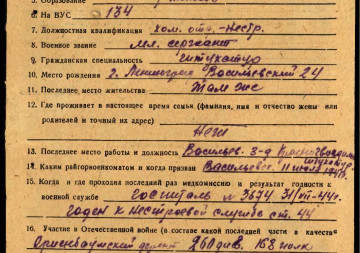 6. На ВУС 134
7. Должностная квалификация ком. отд. нестр.
8. Военное звание мл. сержант
9. Гражданская специальность штукатур
10. Место рождения г. Ленинград Васильевский 24
11. Последнее место жительства Там же
12. Где проживает в настоящее время семья (фамилия, имя и отчество жены или
родителей и точный их адрес)
Нет
13. Последнее место работы и должность Васильев. з-д
штукатур
14. Каким райгорвоенкоматом и когда призван Васильевск. 11 июля 1941г.
15. Когда и где проходил последний раз медкомиссию и результат годности к
военной службе госпиталь № 3674 31/VII-44г.
годен к нестроевой службе ст. 44
16. Участие в Отечественной войне (в составе какой последней части в качеств
268 див. 168 полк